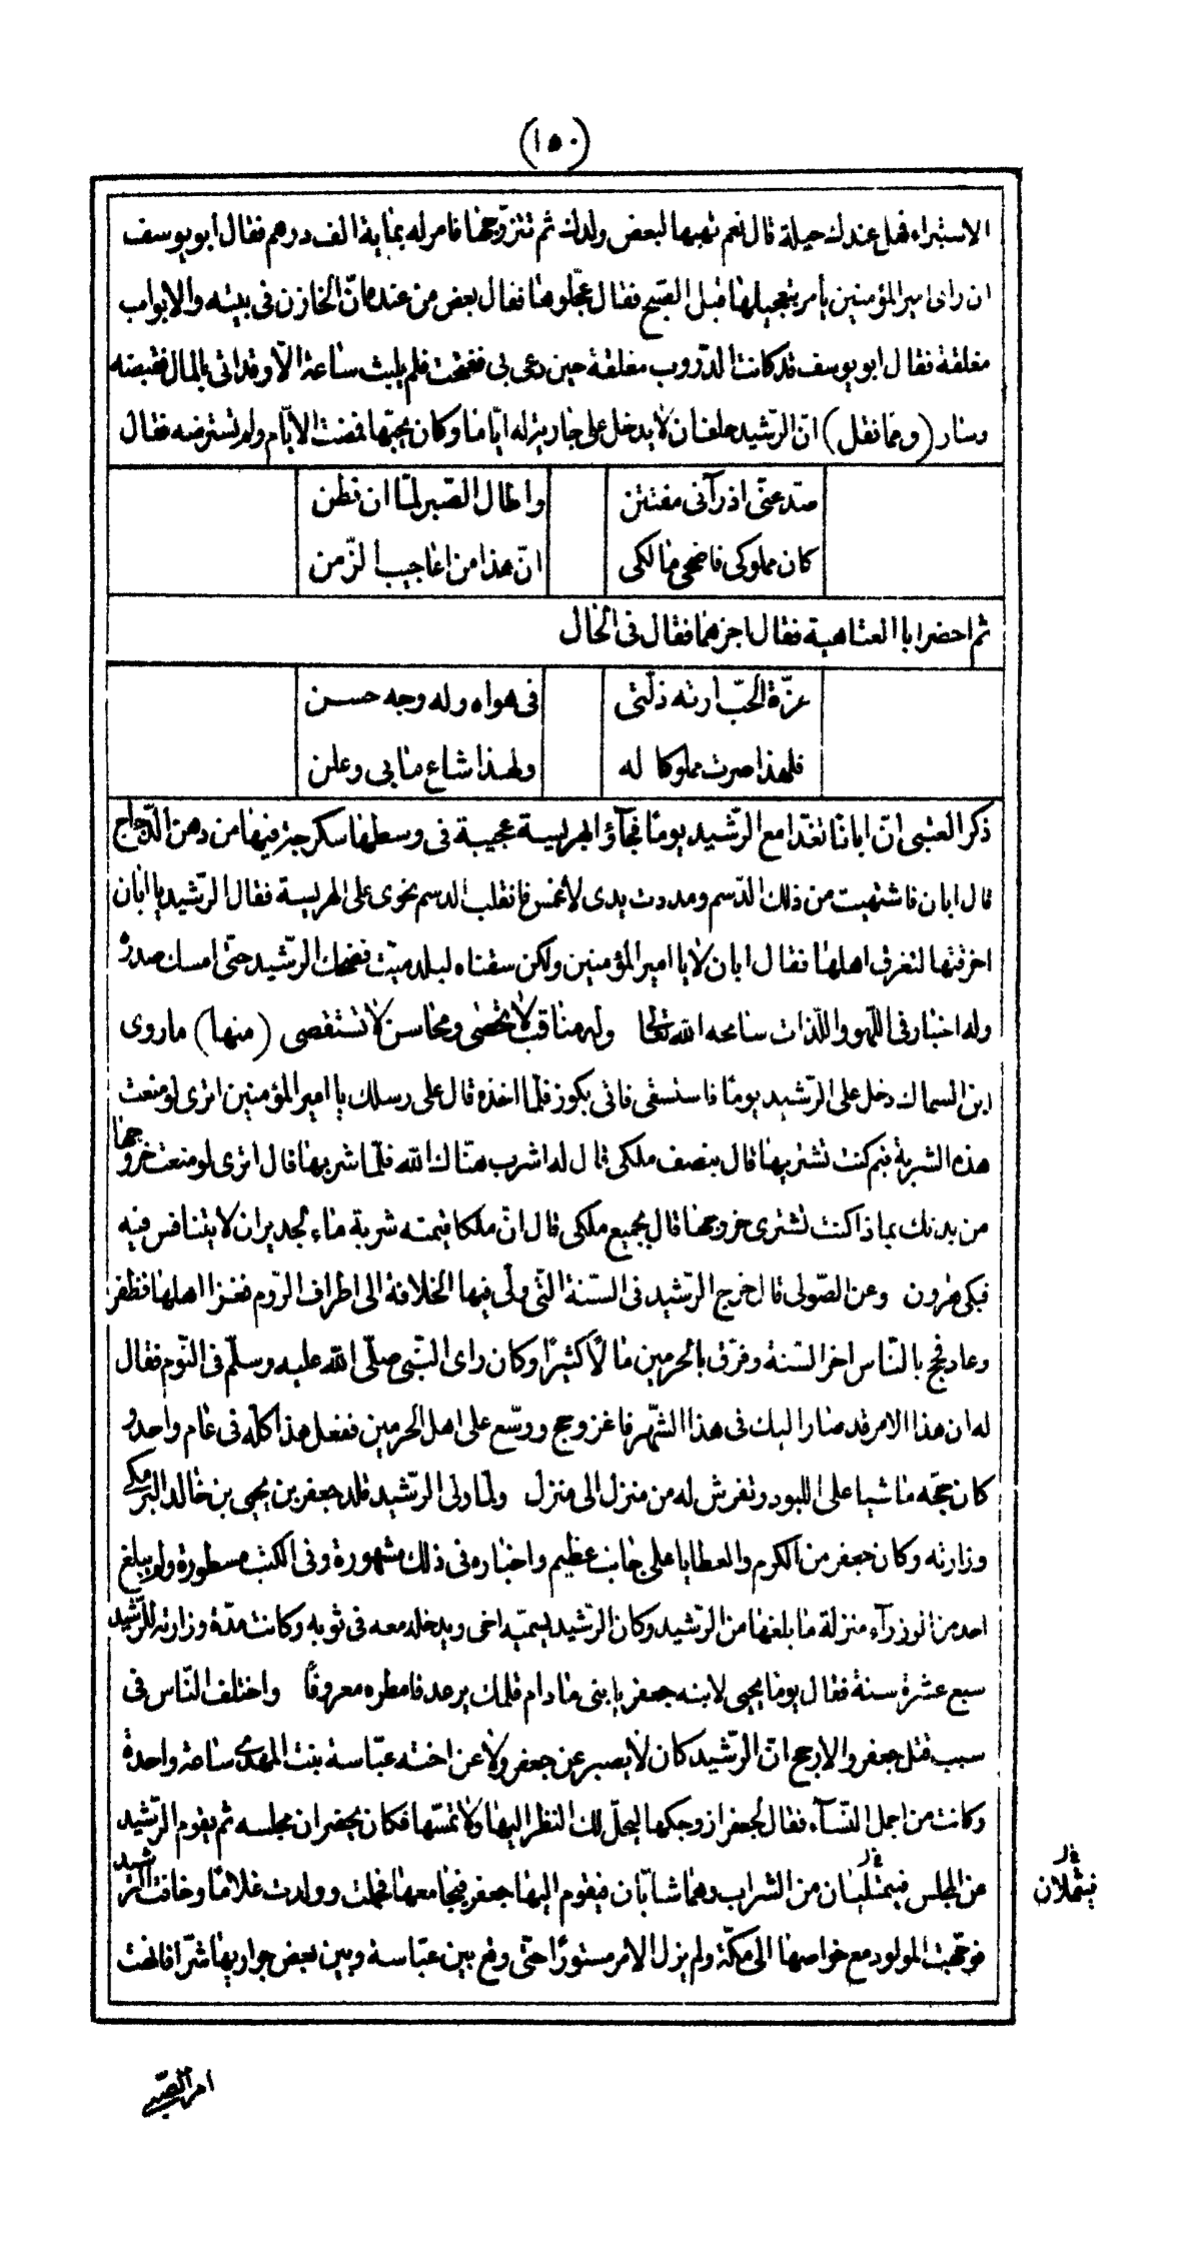 (١٥٠)
الاستبراء فهل عندك حيلة قال نعم تهبها لبعض ولدك ثم تتزوجها فامر له بماية الف درهم فقال ابو يوسف
ان راى امير المؤمنين يأمر بتعجيلها قبل الصبح فقال عجّلوها فقال بعض من عنده انّ الخازن فى بيته والابواب
مغلقة فقال ابو يوسف قد كانت الدّروب مغلقة حين دعى بى ففتحت فلم يلبث ساعة الّا وقد اتى بالمال فقبضه
وسار (وممّا نقل) انّ الرّشيد حلف ان لا يدخل على جارية له ايّاما وكان يحبّها فمضت الايّام ولم تسترضه فقال
صدّ عنّى اذ رآنى مفتتن واطال الصّبر لمّا ان فطن
كان مملوكى فاضحى مالكى انّ هذا من اعاجيب الزّمن
ثم احضر ابا العتاهية فقال اجزهما فقال فى الحال
عزّة الحبّ ارته ذلّتى فى هواه وله وجه حسن
فلهذا صرت مملوكا له ولهذا شاع ما بى وعلن
ذكر العتبى انّ ابانا تغدا مع الرّشيد يوما فجآؤ الهريسة عجيبة فى وسطها سكرجة فيها من دهن الدّجاج
قال ابان فاشتهيت من ذلك الدّسم ومددت يدى لاغمس فانقلب الدسم نحوى على الهريسة فقال الرّشيد يا ابان
اخرقتها لتغرق اهلها فقال ابان لا يا امير المؤمنين ولكن سقناه لبلد ميّت فضحك الرّشيد حتّى امسك صدره
وله اخبار فى اللّهو واللّذات سامحه الله تعالى وله مناقب لا تحصى ومحاسن لا تستقصى (منها) ما روى
ابن السماك دخل على الرّشيد يوما فاستسقى فاتى بكوز فلمّا اخذه قال على رسلك يا امير المؤمنين اترى لو منعت
هذه الشربة فبم كنت تشتريها قال بنصف ملكى قال له اشرب هنّاك الله فلمّا شربها قال اترى لو منعت خروجها
من بدنك بماذا كنت تشترى خروجها قال بجميع ملكى قال انّ ملكا قيمته شربة ماء لجدير ان لا يتنافس فيه
فبكى هرون وعن الصّولى قال خرج الرّشيد فى السّنة التّى ولّى فيها الخلافة الى اطراف الرّوم فغزا اهلها فظفر
وعاد فحج بالنّاس اخر السّنة وفرّق بالحرمين مالًا كثيرًا وكان راى النّبى صلّى الله عليه وسلّم فى النّوم فقال
له ان هذا الامر قد صار اليك فى هذا الشّهر فاغز وحج ووسّع على اهل الحرمين ففعل هذا كلّه فى عام واحد و
كان حجّه ماشيا على اللبود وتفرش له من منزل الى منزل ولمّا ولى الرّشيد قلد جعفر بن يحيى بن خالد البرمكى
وزارته وكان جعفر من الكرم والعطايا على جانب عظيم واخباره فى ذلك مشهورة وفى الكتب مسطورة ولم يبلغ
احد من الوزرآء منزلة ما بلغها من الرّشيد وكان الرّشيد يسمّيه اخى ويدخله معه فى ثوبه وكانت مدّة وزارته للرّشيد
سبع عشرة سنة فقال يوما يحيى لابنه جعفر يا بنى ما دام قلمك يرعد فامطره معروفًا واختلف النّاس فى
سبب قتل جعفر والارجح انّ الرّشيد كان لا يصبر عن جعفر ولا عن اخته عبّاسة بنت المهدى ساعة واحدة
وكانت من اجمل النّسآء فقال لجعفر ازوجكها ليحلّ لك النظر اليها ولا تمسّها فكان يحضران مجلسه ثم يقوم الرّشيد
عن المجلس فيمتلئان من الشراب وهما شابّان فيقوم اليها جعفر فيجامعها فحملت وولدت غلامًا وخافت الرّشيد
فيثملان
فوجّهت المولود مع خواصها الى مكّة ولم يزل الامر مستورًا حتّى وقع بين عبّاسة وبين بعض جواريها شرّ فانهت
امر الصّبى